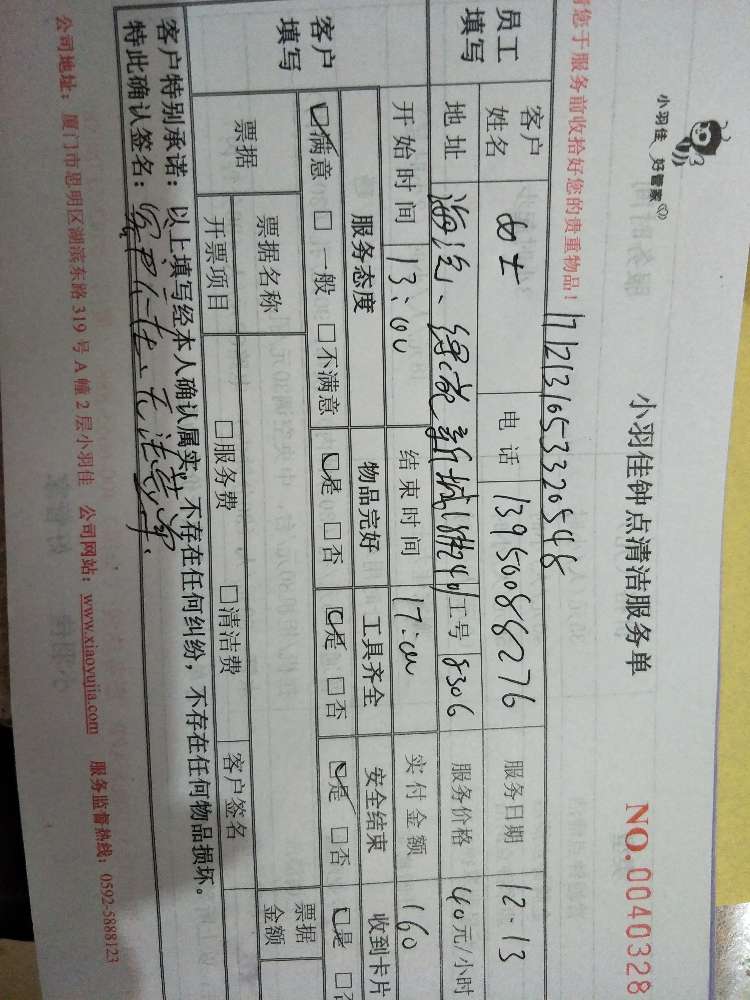 小羽佳 好管家
小羽佳钟点清洁服务单
NO.0040328
您于服务前收拾好您的贵重物品!
17121310533320548
员工填写
客户姓名 女士 电话 13950088276 服务日期 12.13
地址 海沧、绿苑新城 工号 8306 服务价格 40元/小时
开始时间 13:00 结束时间 17:00 实付金额 160
客户填写
服务态度 物品完好 工具齐全 安全结束 收到卡片
☑满意 □一般 □不满意 ☑是 □否 ☑是 □否 ☑是 □否 ☑是 □否
票据 票据名称 票据金额
开票项目 □服务费 □清洁费 客户签名
客户特别承诺:以上填写经本人确认属实,不存在任何纠纷,不存在任何物品损坏。
特此确认签名:客户不在、无法签单.
公司地址:厦门市思明区湖滨东路319号A幢2层小羽佳 公司网站:www.xiaoyujia.com 服务监督热线:0592-5888123